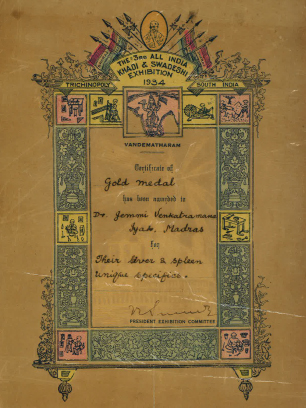 THE 3RD ALL INDIA
KHADI & SWADESHI
EXHIBITION
1934
TRICHINOPOLY
SOUTH INDIA
VANDEMATHARAM
Certificate of
Gold medal
has been awarded to
Dr. Jemmi Venkatramana
Madras
for
Their Liver & Spleen
Unique Specifics.
PRESIDENT EXHIBITION COMMITTEE